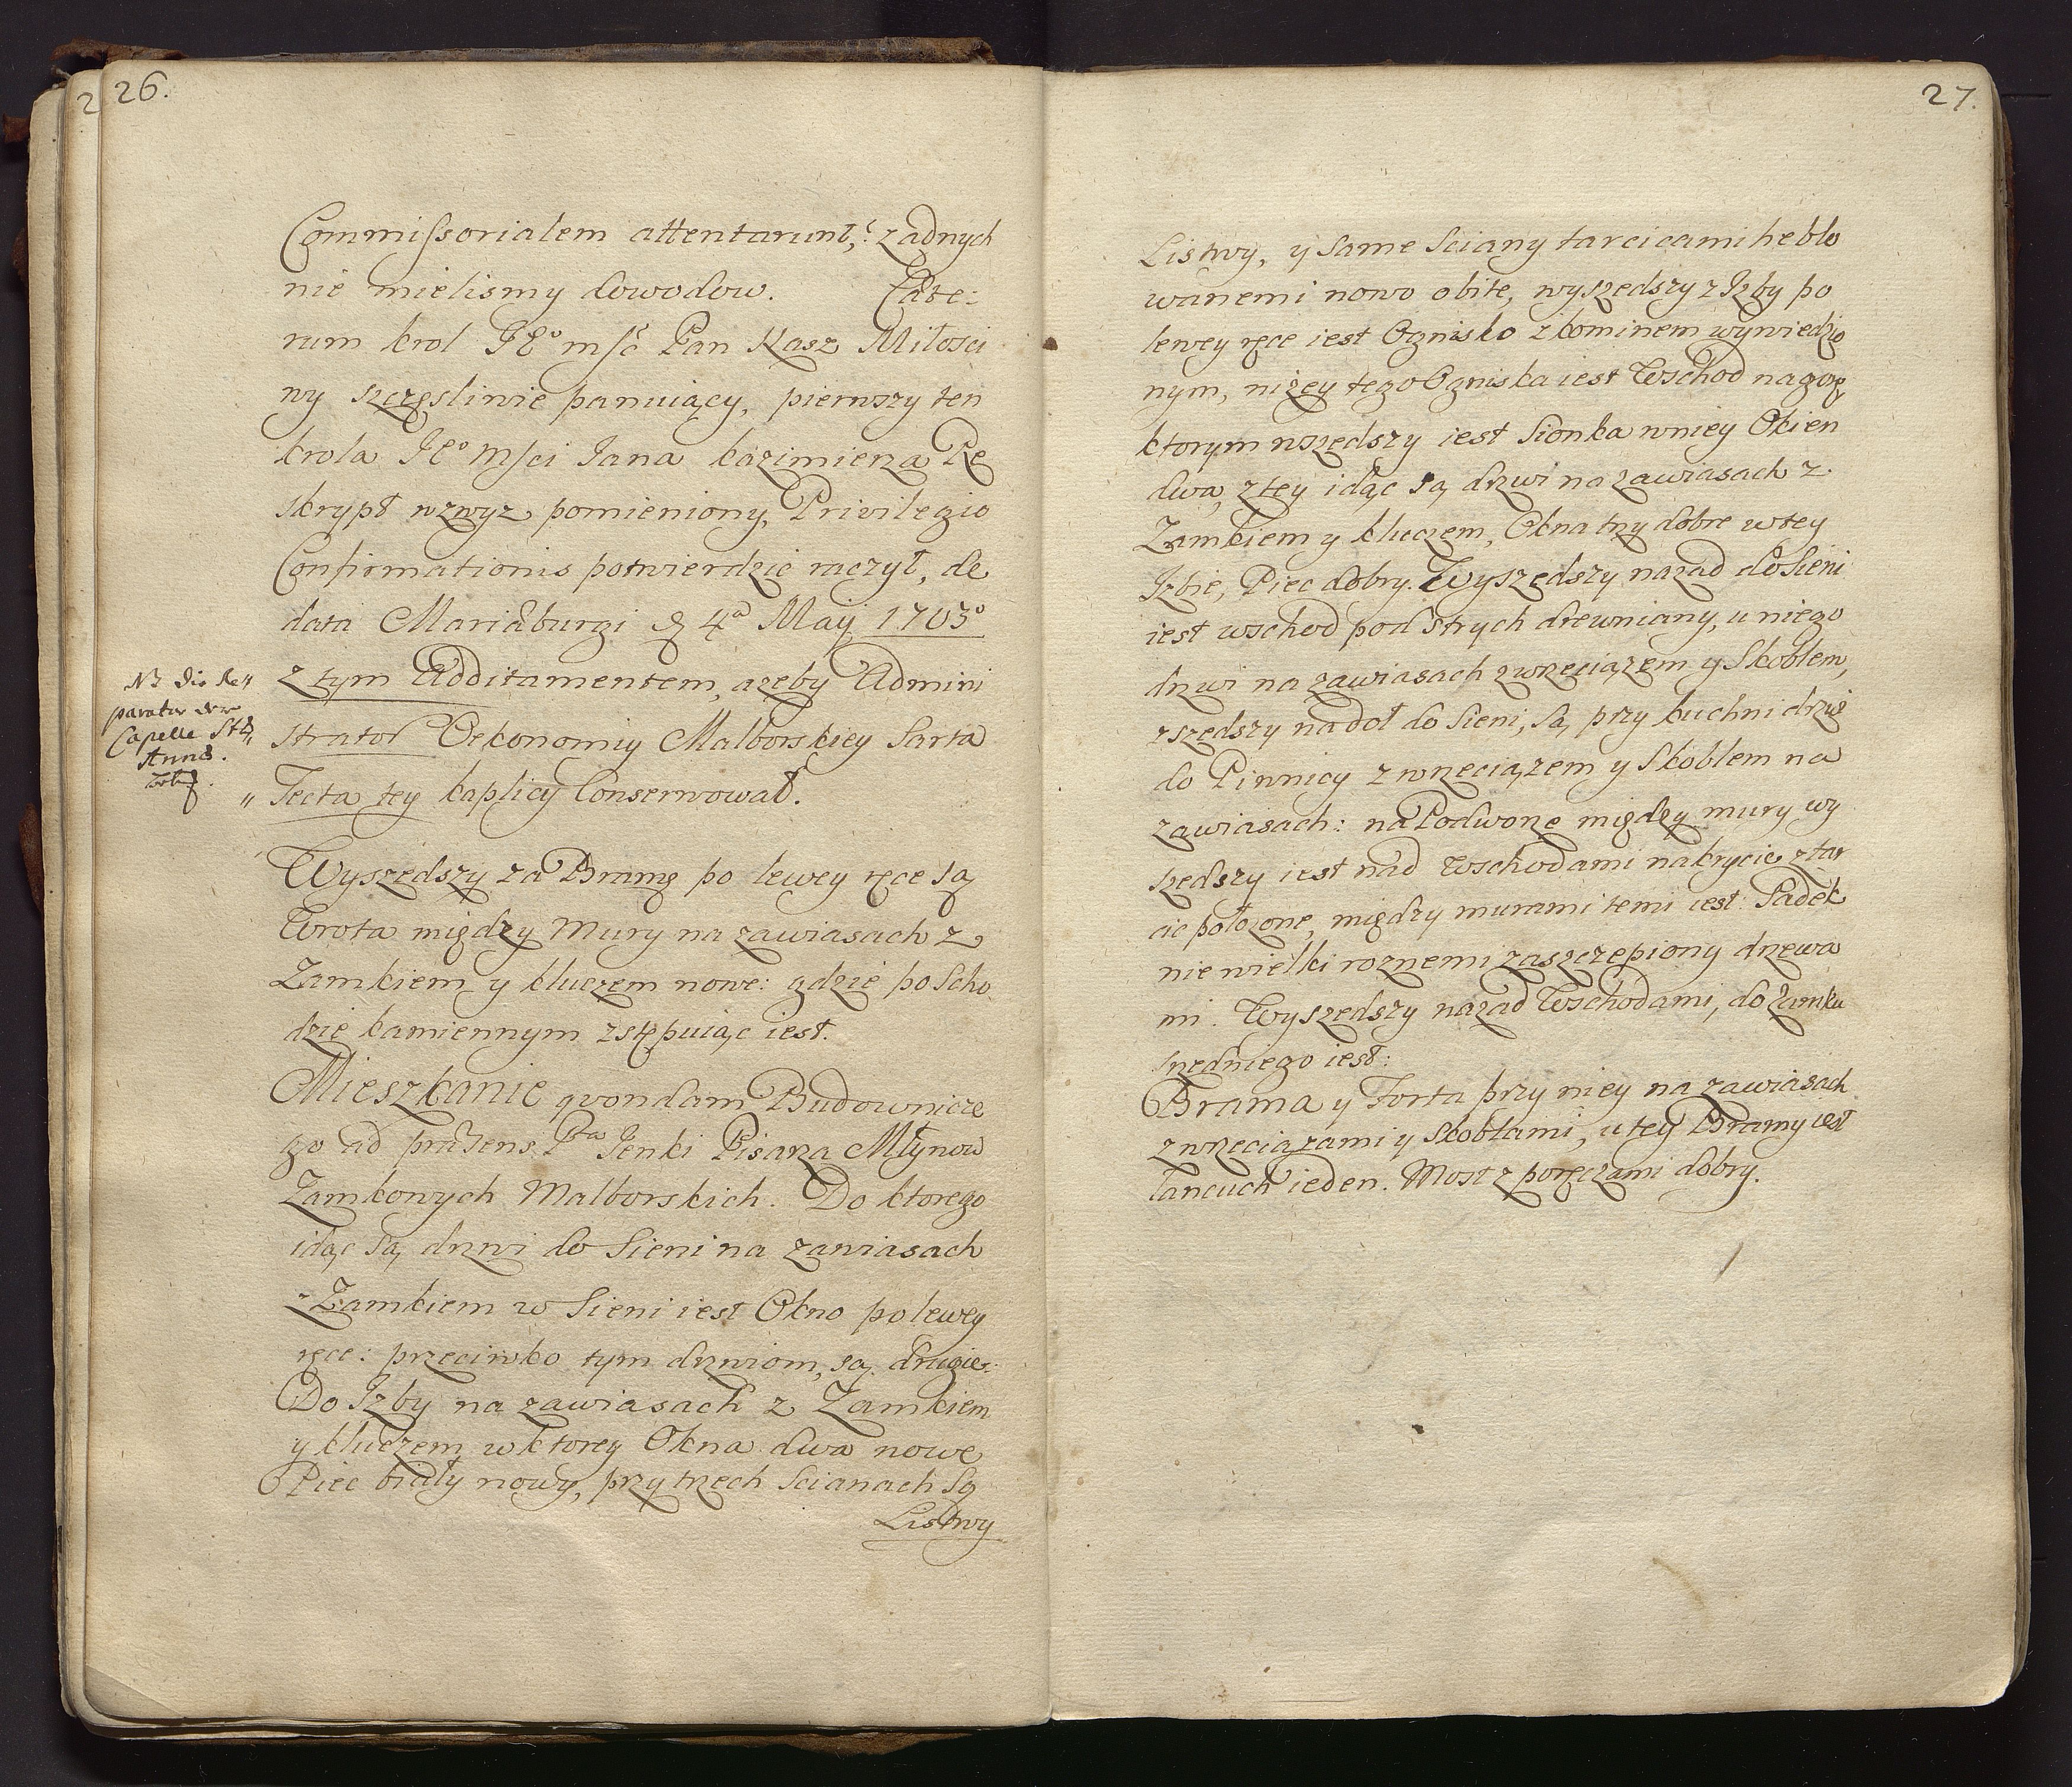 26.
Commissorialem attentarunt, żadnych
nie mielismy dowodow. Cæte-
rum krol JEº mść Pan Nasz Miłosci
wy szczęsliwie panuiący, pierwszy ten
krola JEº Mści Jana kazimierza Re
skrypt wzwyz pomieniony, Privilegio
Confirmationis potwierdzic raczył, de
data Mariæburgi d 4ª Maij 1703º
z tym Additamentem, azeby Admini
strator Oekonomiy Malborskiey Sarta
Tecta tey kaplicy Conserwował.
NB die Re„
paratur der
Capelle St.
Annæ
Wyszedszy za Bramę po lewey ręce są
Wrota między Mury na zawiasach z
Zamkiem y kluczem nowe: gdzie po Scho
dzie kamiennym zstępuiąc iest.
Mieszkanie qvondam Budownicze
go ad præsens Pª Jenki Pisarza Młynow
Zamkowych Malborskich. Do ktorego
idąc są drzwi do Sieni na zawiasach
z Zamkiem w Sieni iest Okno po lewey
ręce: przeciwko tym drzwiom, są drugie:
Do Izby na zawiasach z Zamkiem
y kluczem w ktorey Okna dwa nowe
Piec biały nowy, przy trzech Scianach Są
Listwy
27.
Listwy, y same Sciany tarcicami heblo
wanemi nowo obite, wyszedszy z Izby po
lewey ręce iest Ognisko z kominem wywiedzio
nym, niżey tego Ogniska iest Wschod na gorę
ktorym wszedszy iest Sionka w niey Okien
dwa, z tey idąc są drzwi na zawiasach z
Zamkiem y kluczem, Okna trzy dobre w tey
Izbie, Piec dobry. Wyszedszy nazad do Sieni
iest wschod pod Strych drewniany, u niego
drzwi na zawiasach z wrzeciązem y Skoblem,
zszedszy na doł do Sieni, są przy kuchni drzwi
do Piwnicy z wrzeciązem y Skoblem na
zawiasach: na Podworze między mury wy
szedszy iest nad Wschodami nakrycie z tar
cic położone, między murami temi iest Sadek
nie wielki roznemi zaszczepiony drzewa
mi. Wyszedszy nazad Wschodami, do Zamku
srzedniego iest:
Brama y Forta przy niey na zawiasach
z wrzeciązami y Skoblami, u tey Bramy iest
Łancuch ieden. Most z poręczami dobry.